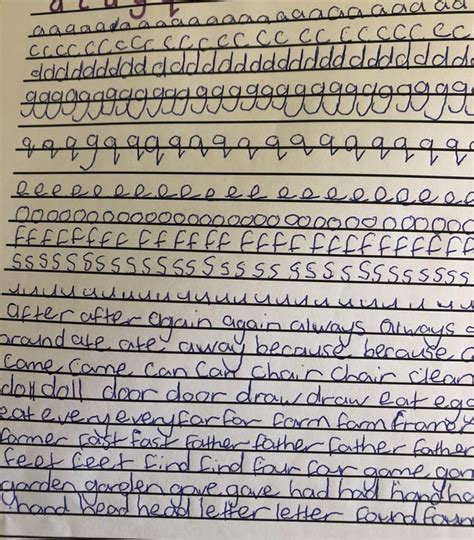 a c d g q
aaaaaaaaaaaaaaaaaaaaaaaa
ccccccccccccccccccccccc
ddddddddddddddddddddddddd
gggggggggggggggggggggg
qqqgqqqqqqqqqqqqqq
eeeeeeeeeeeeeeeeeeeee
ooooooooooooooooooooooooooo
fffffffffffffffffffffffff
sssssssssssssssssssssssss
uuuuuuuuuuuuuuuuuuuu
after after again again always always
around ate ate away because because
came came can can chair chair clean
doll doll door door draw draw eat egg
eat every every far far farm farm
farmer fast fast father father father father
feet feet find find four far game
garden garden gave gave had had hand
hand head head letter letter found found